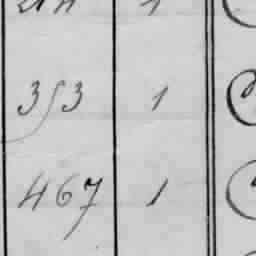 353 1
467 1